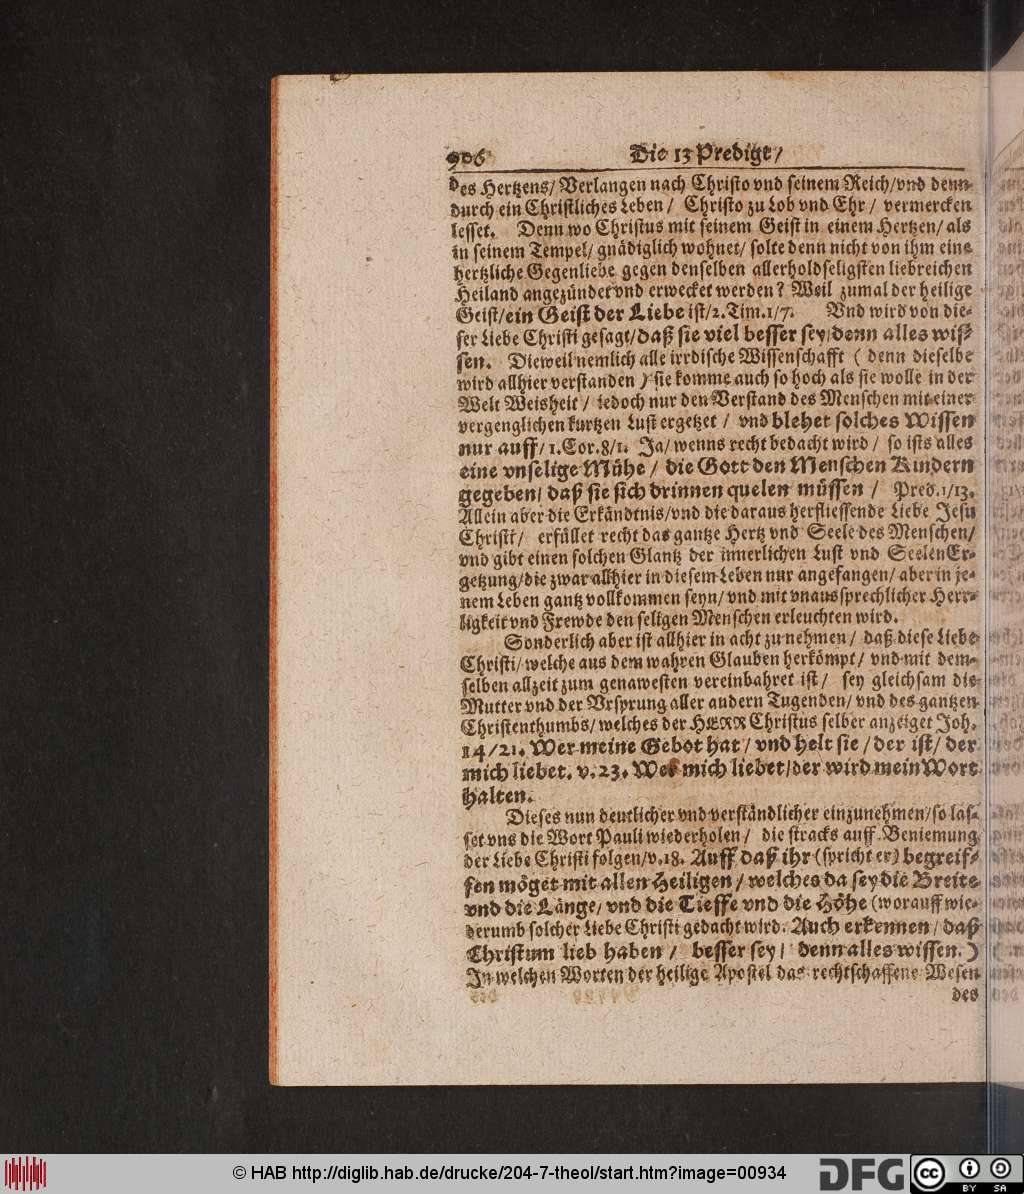 906 Die 13 Predigt /
des Hertzens / Verlangen nach Christo vnd seinem Reich / vnd denn-
durch ein Christliches Leben / Christo zu Lob vnd Ehr / vermercken
lesset. Denn wo Christus mit seinem Geist in einem Hertzen / als
in seinem Tempel / gnädiglich wohnet / solte denn nicht von ihm eine
hertzliche Gegenliebe gegen denselben allerholdseligsten liebreichen
Heiland angezündet vnd erwecket werden? Weil zumal der heilige
Geist / ein Geist der Liebe ist / 2. Tim. 1/7. Vnd wird von die-
ser Liebe Christi gesagt / daß sie viel besser sey / denn alles wis-
sen. Dieweil nemlich alle irrdische Wissenschafft ( denn dieselbe
wird allhier verstanden ) sie komme auch so hoch als sie wolle in der
Welt Weisheit / iedoch nur den Verstand des Menschen mit einer
vergenglichen kurtzen Lust ergetzet / vnd blehet solches Wissen
nur auff / 1. Cor. 8/1. Ja / wenns recht bedacht wird / so ists alles
eine vnselige Mühe / die Gott den Menschen Kindern
gegeben / daß sie sich drinnen quelen müssen / Pred. 1/13.
Allein aber die Erkändtnis / vnd die daraus herfliessende Liebe Jesu
Christi / erfüllet recht das gantze Hertz vnd Seele des Menschen /
vnd gibt einen solchen Glantz der innerlichen Lust vnd Seelen Er-
getzung / die zwar allhier in diesem Leben nur angefangen / aber in je-
nem Leben gantz vollkommen seyn / vnd mit vnaussprechlicher Herr-
ligkeit vnd Frewde den seligen Menschen erleuchten wird.
Sonderlich aber ist allhier in acht zu nehmen / daß diese Liebe
Christi / welche aus dem wahren Glauben herkömpt / vnd mit dem-
selben allzeit zum genawesten vereinbahret ist / sey gleichsam die
Mutter vnd der Vrsprung aller andern Tugenden / vnd des gantzen
Christenthumbs / welches der HERR Christus selber anzeiget Joh.
14/21. Wer meine Gebot hat / vnd helt sie / der ist / der
mich liebet. v. 23. Wer mich liebet / der wird mein Wort
halten.
Dieses nun deutlicher vnd verständlicher einzunehmen / so las-
set vns die Wort Pauli wiederholen / die stracks auff Beniemung
der Liebe Christi folgen / v. 18. Auff daß ihr (spricht er) begreif-
fen möget mit allen Heiligen / welches da sey die Breite
vnd die Länge / vnd die Tieffe vnd die Höhe (worauff wie-
derumb solcher Liebe Christi gedacht wird. Auch erkennen / daß
Christum lieb haben / besser sey / denn alles wissen. )
In welchen Worten der heilige Apostel das rechtschaffene Wesen
des
© HAB http://diglib.hab.de/drucke/204-7-theol/start.htm?image=00934
DFG
cc
BY SA